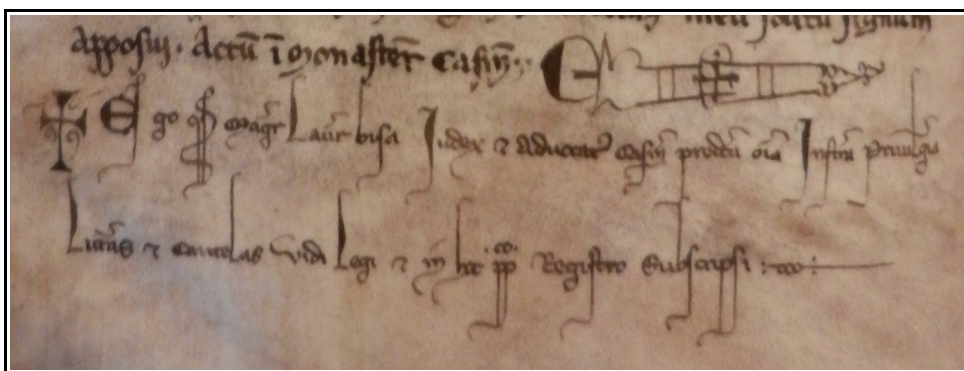 meu solitu signum
apposui. Actū ī monasteř Casiñ.
✠ Ego qui Magr̄ Laur̄ bisa Iudex & aduocat9 Casiñ predcū oīa Instrā Priuilegia
Licteras & Cautelas vidi Legi & in hoc pp̄o Registro Subscripsi